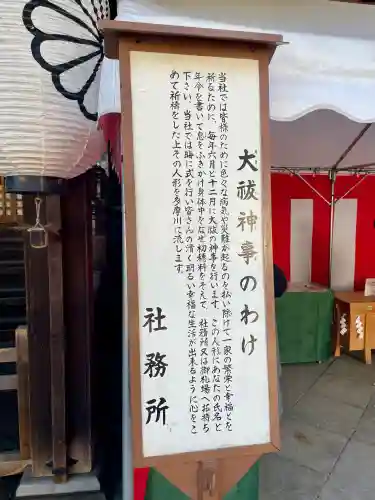 大祓神事のわけ
当社では皆様のために色々な病気や災難が起るのを払い除けて一家の繁栄と幸福とを
祈るために、毎年六月と十二月に大祓の神事を行います。この人形にあなたの氏名と
年令を書いて息をふきかけ身体中をなで初穂料をそえて、社務所又は御札場へお持ち
下さい。当社では晦に式を行い皆さんの清く明るい幸福な生活が出来るように心をこ
めて祈祷をした上その人形を多摩川に流します。
社務所